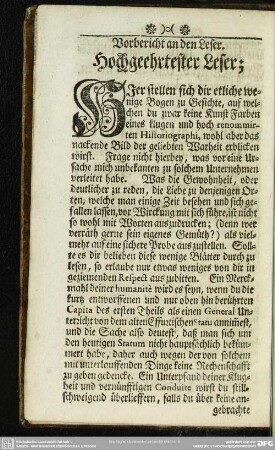 Vorbericht an den Leser.
Hochgeehrtester Leser;
HJer stellen sich dir etliche we-
nige Bogen zu Gesichte, auf wel-
chen du zwar keine Kunst Farben
eines klugen und hoch renommir-
ten Historiographi, wohl aber das
nackende Bild der geliebten Warheit erblicken
wirst. Frage nicht hierbey, was vor eine Ur-
sache mich unbekanten zu solchem Unternehmen
verleitet habe. Was die Gewohnheit, oder
deutlicher zu reden, die Liebe zu denjenigen Or-
ten, welche man einige Zeit besehen und sich ge-
fallen lassen, vor Wirckung mit sich führe, ist nicht
so wohl mit Worten auszudrucken; (denn wer
verräth gerne sein eigenes Gemüth?) als viel-
mehr auf eine sichere Probe auszustellen. Soll-
te es dir belieben diese wenige Blätter durch zu
lesen, so erlaube nur etwas weniges von dir in
geziemenden Respect aus zubitten. Ein Merck-
mahl deiner humanité wird es seyn, wenn du die
kurtz entworffenen und nur oben hin berührten
Capita des ersten Theils als einen General Un-
terricht von dem alten
und die Sache also deutest, daß man sich um
den heutigen Statum nicht hauptsächlich beküm-
mert habe, daher auch wegen der von solchem
mit unterlauffenden Dinge keine Rechenschafft
zu geben gedencke. Ein Unterpfand deiner Klug-
heit und vernünfftigen Conduite wirst du still-
schweigend überlieffern, falls du über keine an-
gebrachte